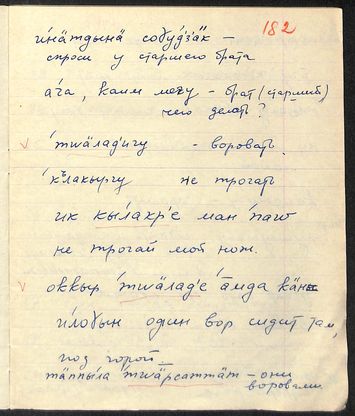 182
и́нӓтдынӓ собу́дзӓк –
спроси у старшего брата
а́га, каим мегу – брат (старший)
чего делать?
ʹтшӓладигу – воровать
ʹкълакыргу не трогать
ик кы́лакр'е ман ʹпаш
не трогай мой нож.
оккыр ʹтшӓлад'е ʹа̄мда кӓнн
и́лобын один вор сидит там,
под горой –
тӓппыла ʹтшӓрсаттӓт – они
воровали